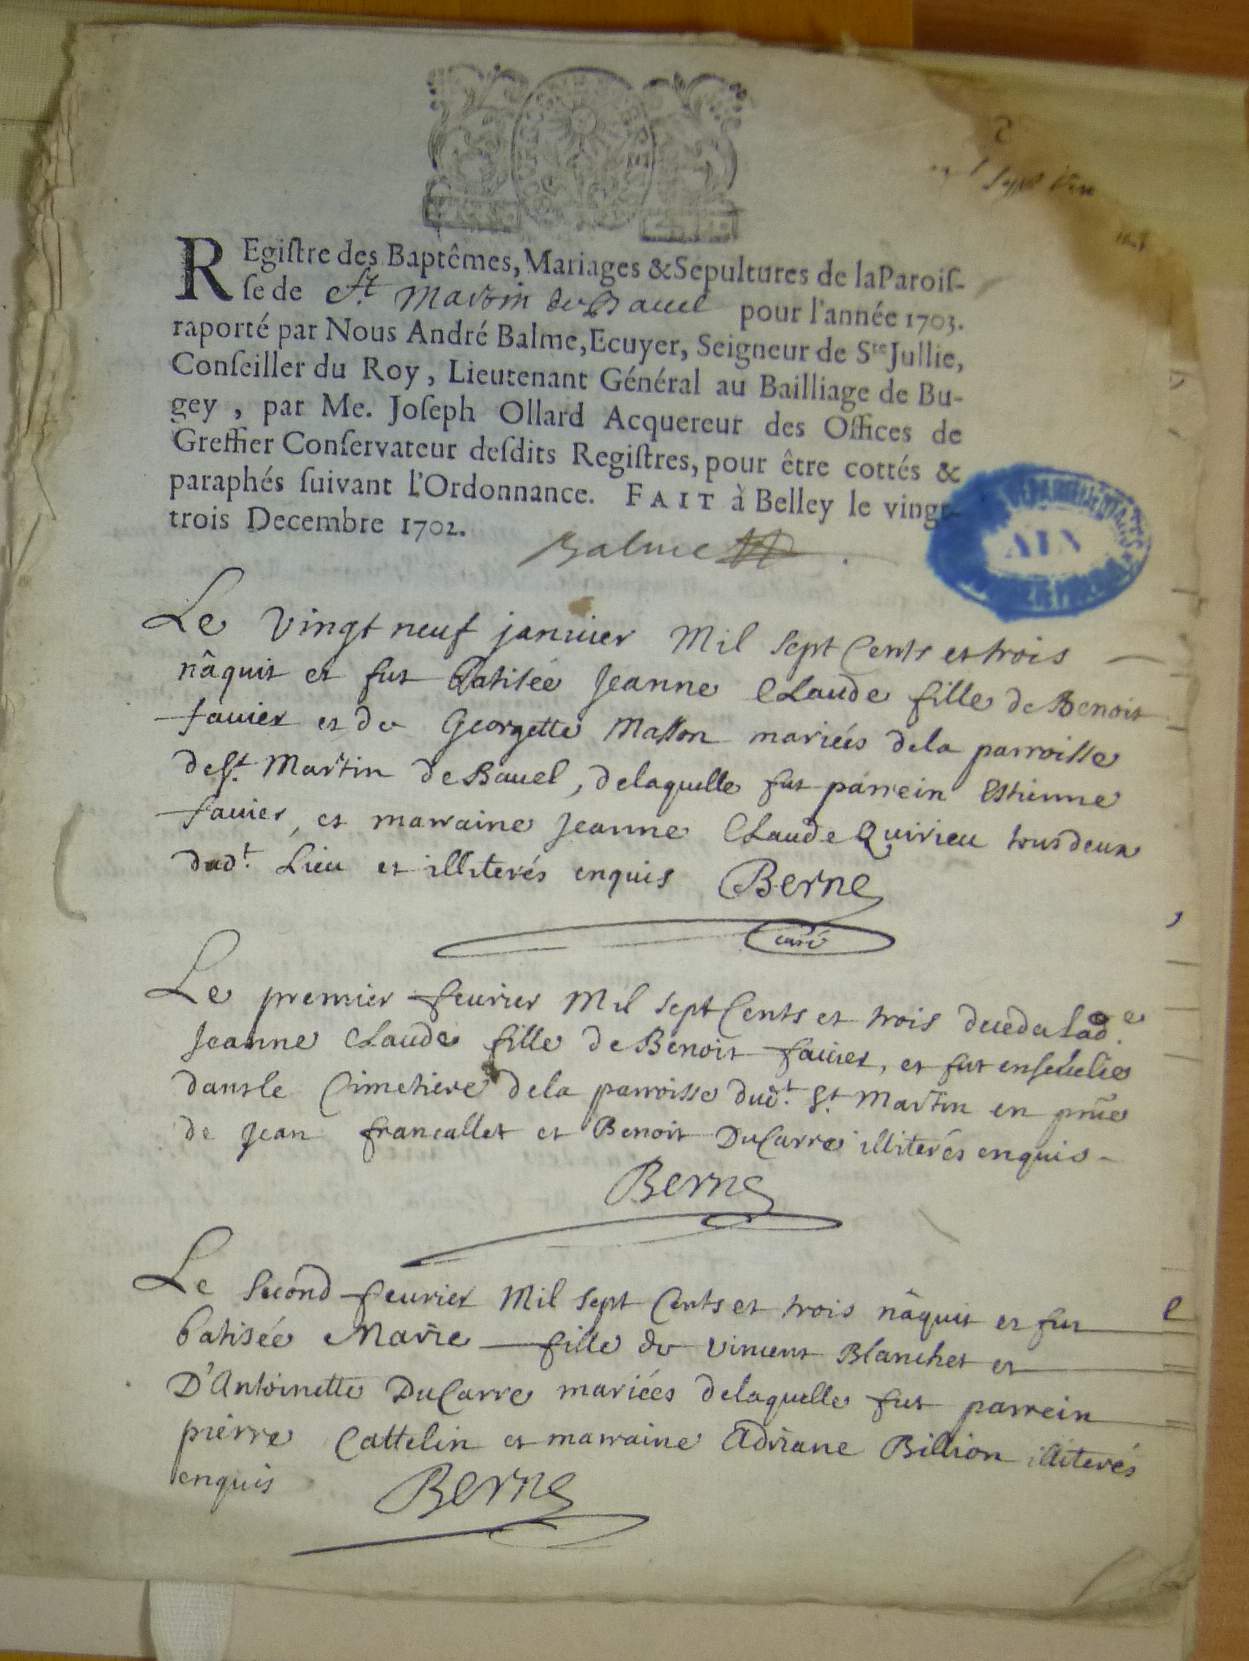 REgiſtre des Baptêmes, Mariages & Sepultures de la Paroiſ-
ſe de St. Martin de Bavel pour l'année 1703.
raporté par Nous André Balme, Ecuyer, Seigneur de Ste Jullie,
Conſeiller du Roy, Lieutenant Général au Bailliage de Bu-
gey, par Me. Joſeph Ollard Acquereur des Offices de
Greffier Conſervateur deſdits Regiſtres, pour être cottés &
paraphés ſuivant l'Ordonnance. FAIT à Belley le vingt-
trois Decembre 1702.
Balme
AIN
Le vingt neuf janvier Mil sept Cents et trois
nâquit et fut batisée Jeanne Claude fille de Benoit
favier et de Georgette Masson mariés dela parroisse
de St. Martin de Bavel, delaquelle fut parrein Estienne
favier, et marraine Jeanne Claude Quirieu tous deux
dudt. Lieu et illiterés enquis Berne
curé
Le premier fevrier Mil sept Cents et trois deceda Lade.
Jeanne Claude fille de Benoit favier, et fut ensevelie
dans le Cimetiere dela parroisse dudt. St. Martin en pnce
de Jean francallet et Benoit DuCarre illiterés enquis
Berne
Le second fevrier Mil sept Cents et trois nâquit et fut
batisée Marie fille de vincent Blanchet et
D'Antoinette DuCarre mariées delaquelle fut parrein
pierre Cattelin et marraine Adriane Billion illiterés
enquis Berne